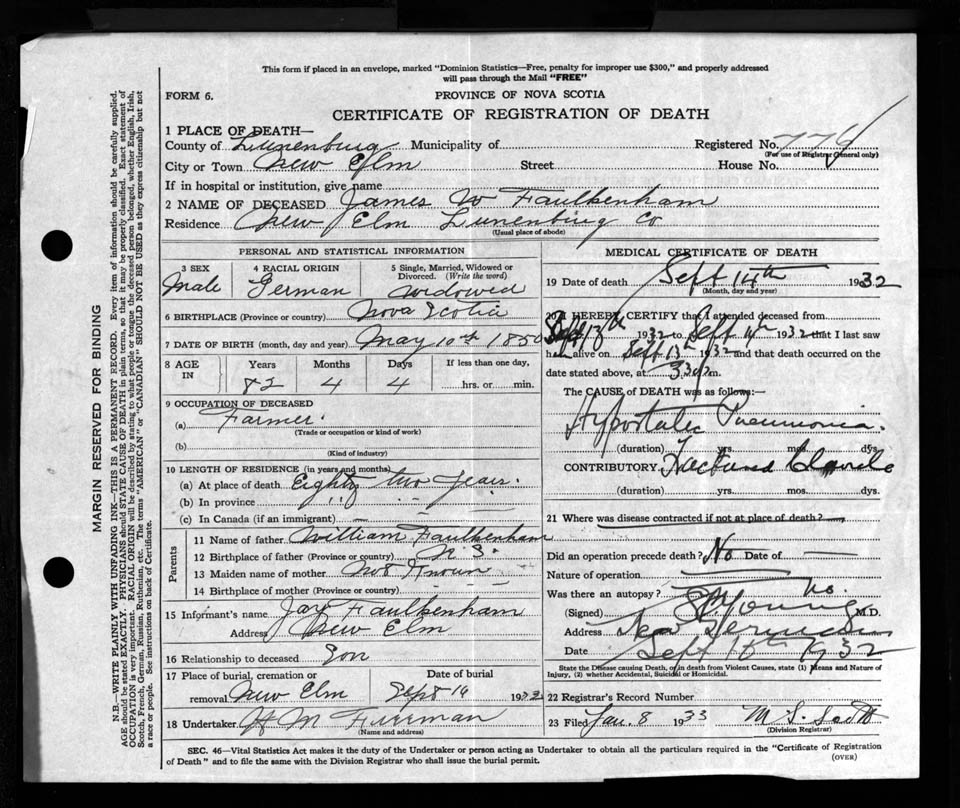 This form if placed in an envelope, marked "Dominion Statistics—Free, penalty for improper use $300," and properly addressed
will pass through the Mail "FREE"
FORM 6.
PROVINCE OF NOVA SCOTIA
CERTIFICATE OF REGISTRATION OF DEATH
MARGIN RESERVED FOR BINDING
N.B.—WRITE PLAINLY WITH UNFADING INK—THIS IS A PERMANENT RECORD. Every item of information should be carefully supplied.
AGE should be stated EXACTLY. PHYSICIANS should STATE CAUSE OF DEATH in plain terms, so that it may be properly classified. Exact statement of
OCCUPATION is very important. RACIAL ORIGIN will be described by stating to what people or tongue the deceased person belonged, whether English, Irish,
Scotch, French, German, Russian, Ruthenian, etc. The terms "AMERICAN" or "CANADIAN" SHOULD NOT BE USED as they express citizenship but not
a race or people. See instructions on back of Certificate.
1 PLACE OF DEATH—
County of Lunenburg Municipality of Registered No. 774
(For use of Registrar General only)
City or Town New Elm Street House No.
If in hospital or institution, give name
2 NAME OF DECEASED James W Faulkenham
Residence New Elm Lunenburg Co
(Usual place of abode)
PERSONAL AND STATISTICAL INFORMATION
3 SEX Male
4 RACIAL ORIGIN German
5 Single, Married, Widowed or
Divorced. (Write the word)
widowed
6 BIRTHPLACE (Province or country) Nova Scotia
7 DATE OF BIRTH (month, day and year) May 10th 1850
8 AGE IN Years Months Days If less than one day,
82 4 4 hrs. or min.
9 OCCUPATION OF DECEASED
(a) Farmer
(Trade or occupation or kind of work)
(b)
(Kind of industry)
10 LENGTH OF RESIDENCE (in years and months)
(a) At place of death Eighty two years.
(b) In province " " "
(c) In Canada (if an immigrant) — —
Parents
11 Name of father William Faulkenham
12 Birthplace of father (Province or country) N.S.
13 Maiden name of mother Not Known
14 Birthplace of mother (Province or country) —
15 Informant's name Jas Faulkenham
Address New Elm
16 Relationship to deceased Son
17 Place of burial, cremation or Date of burial
removal New Elm Sept 16 1932
18 Undertaker H M Furrman
(Name and address)
MEDICAL CERTIFICATE OF DEATH
19 Date of death Sept 14th 1932
(Month, day and year)
20 I HEREBY CERTIFY that I attended deceased from
Sept 13th 1932 to Sept 14th 1932 that I last saw
h alive on Sept 13th 1932 and that death occurred on
date stated above, at 330 p m.
The CAUSE of DEATH was as follows:
Hypostatic Pneumonia.
(duration) yrs. mos. dys.
CONTRIBUTORY Fractured Clavicle
(duration) yrs. mos. dys.
21 Where was disease contracted if not at place of death? —
Did an operation precede death? No Date of —
Nature of operation —
Was there an autopsy? No.
(Signed) Young M.D.
Address New Germany
Date Sept 1932
State the Disease causing Death, or in death from Violent Causes, state (1) Means and Nature of
Injury, (2) whether Accidental, Suicidal or Homicidal.
22 Registrar's Record Number
23 Filed Jan. 8 1933 M S
(Division Registrar)
SEC. 46—Vital Statistics Act makes it the duty of the Undertaker or person acting as Undertaker to obtain all the particulars required in the "Certificate of Registration
of Death" and to file the same with the Division Registrar who shall issue the burial permit.
(OVER)